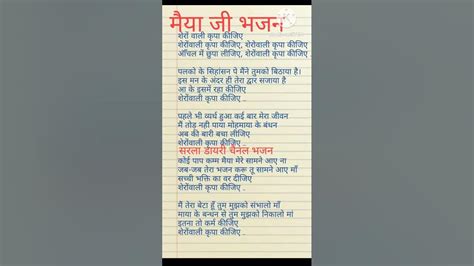 मैया जी भजन
शेरों वाली कृपा कीजिए
शेरोंवाली कृपा कीजिए, शेरोवाली कृपा कीजिए
आँचल में छुपा लीजिए, शेरोंवाली कृपा कीजिए
पलको के सिंहासन पे मैंने तुमको बिठाया है।
इस मन के अंदर ही तेरा द्वार सजाया है
आ के इसमें रहा कीजिए
शेरोंवाली कृपा कीजिए ..
पहले भी व्यर्थ हुआ कई बार मेरा जीवन
मैं तोड़ नही पाया मोहमाया के बंधन
अब की बारी बचा लीजिए
शेरोंवाली कृपा कीजिए ..
सरला डायरी चैनल भजन
कोई पाप कम्म मैया मेरे सामने आए ना
जब-जब तेरा भजन करू तू सामने आए माँ
सच्ची भक्ति का वर दीजिए
शेरोंवाली कृपा कीजिए ..
मैं तेरा बेटा हूँ तुम मुझको संभालो माँ
माया के बन्धन से तुम मुझको निकालो मां
इतना तो कर्म कीजिए
शेरोंवाली कृपा कीजिए ..